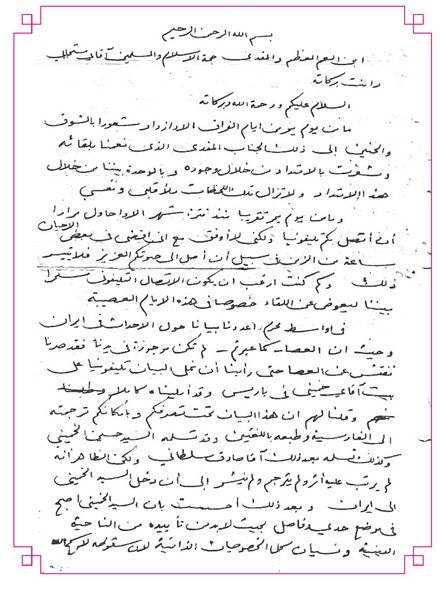 بسم الله الرحمن الرحيم
ابن العم المعظم والمفدى حجة الاسلام والمسلمين آقاي مستجاب
دامت بركاته
السلام عليكم ورحمة الله وبركاته
ما من يوم يمر من ايام الفراق الا ازداد شعورا بالشوق
والحنين الى ذلك الجناب المفدى الذي نعمنا بلقائه
وشعرت بالامتداد من خلال وجوده وبالوحدة بيننا من خلال
هذا الامتداد ولا تزال تلك اللحظات ملأ قلبي ونفسي
وما من يوم يمر تقريبا منذ شهر الا واحاول مرارا
أن أتصل بكم تليفونيا ولكني لا أوفق مع اني اقضي في بعض الاحيان
ساعة من الزمن في سبيل أن أصل الى صوتكم العزيز فلا يتيسر
ذلك وكم كنت ارغب ان يكون الاتصال التليفوني مستمرا
بيننا ليعوض عن اللقاء خصوصا في هذه الايام العصيبة
في اواسط محرم أعددنا بيانا حول الاحداث في ايران
وحيث ان العصا كما عبرتم لم تكن موجودة في يدنا فقد صرنا
نفتش عن العصا حتى رأينا أن نملي البيان تليفونيا على
بيت آقاي خميني في باريس وقد أمليناه كاملا
وقلنا لهم ان هذا البيان تحت تصرفكم وبامكانكم ترجمته
الى الفارسية وطبعه باللغتين وقد تسلمه السيد حسين الخميني
وكذلك تسلمه بعد ذلك آقا صادق سلطاني ولكن الظاهر انه
لم يرتب عليه أثر ولم يترجم ولم ينشر الى أن دخل السيد الخميني
الى ايران وبعد ذلك أحسست بان السيد الخميني اصبح
في موضع حدي وفاصل بحيث لا بد من تأييده من الناحية
الدينية ونسيان كل الخصوصيات الذاتية لان سقوطه لا سمح الله